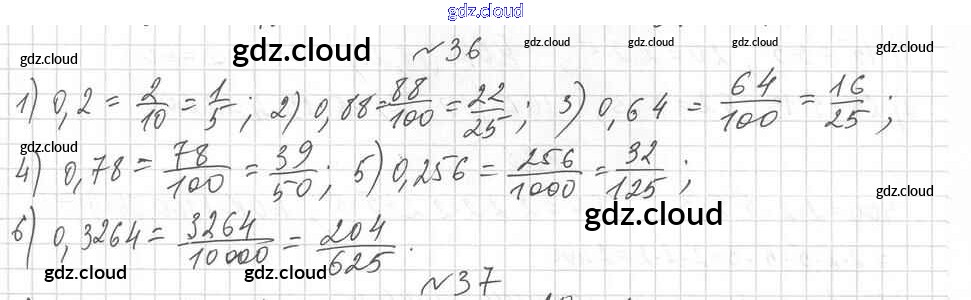 gdz.cloud
gdz.cloud gdz.cloud № 36 gdz.cloud gdz.cloud gdz.cloud
1) 0,2 = 2/10 = 1/5; 2) 0,88 = 88/100 = 22/25; 3) 0,64 = 64/100 = 16/25;
gdz.cloud
4) 0,78 = 78/100 = 39/50; 5) 0,256 = 256/1000 = 32/125;
gdz.cloud gdz.cloud
6) 0,3264 = 3264/10000 = 204/625.
gdz.cloud gdz.cloud gdz.cloud
№ 37